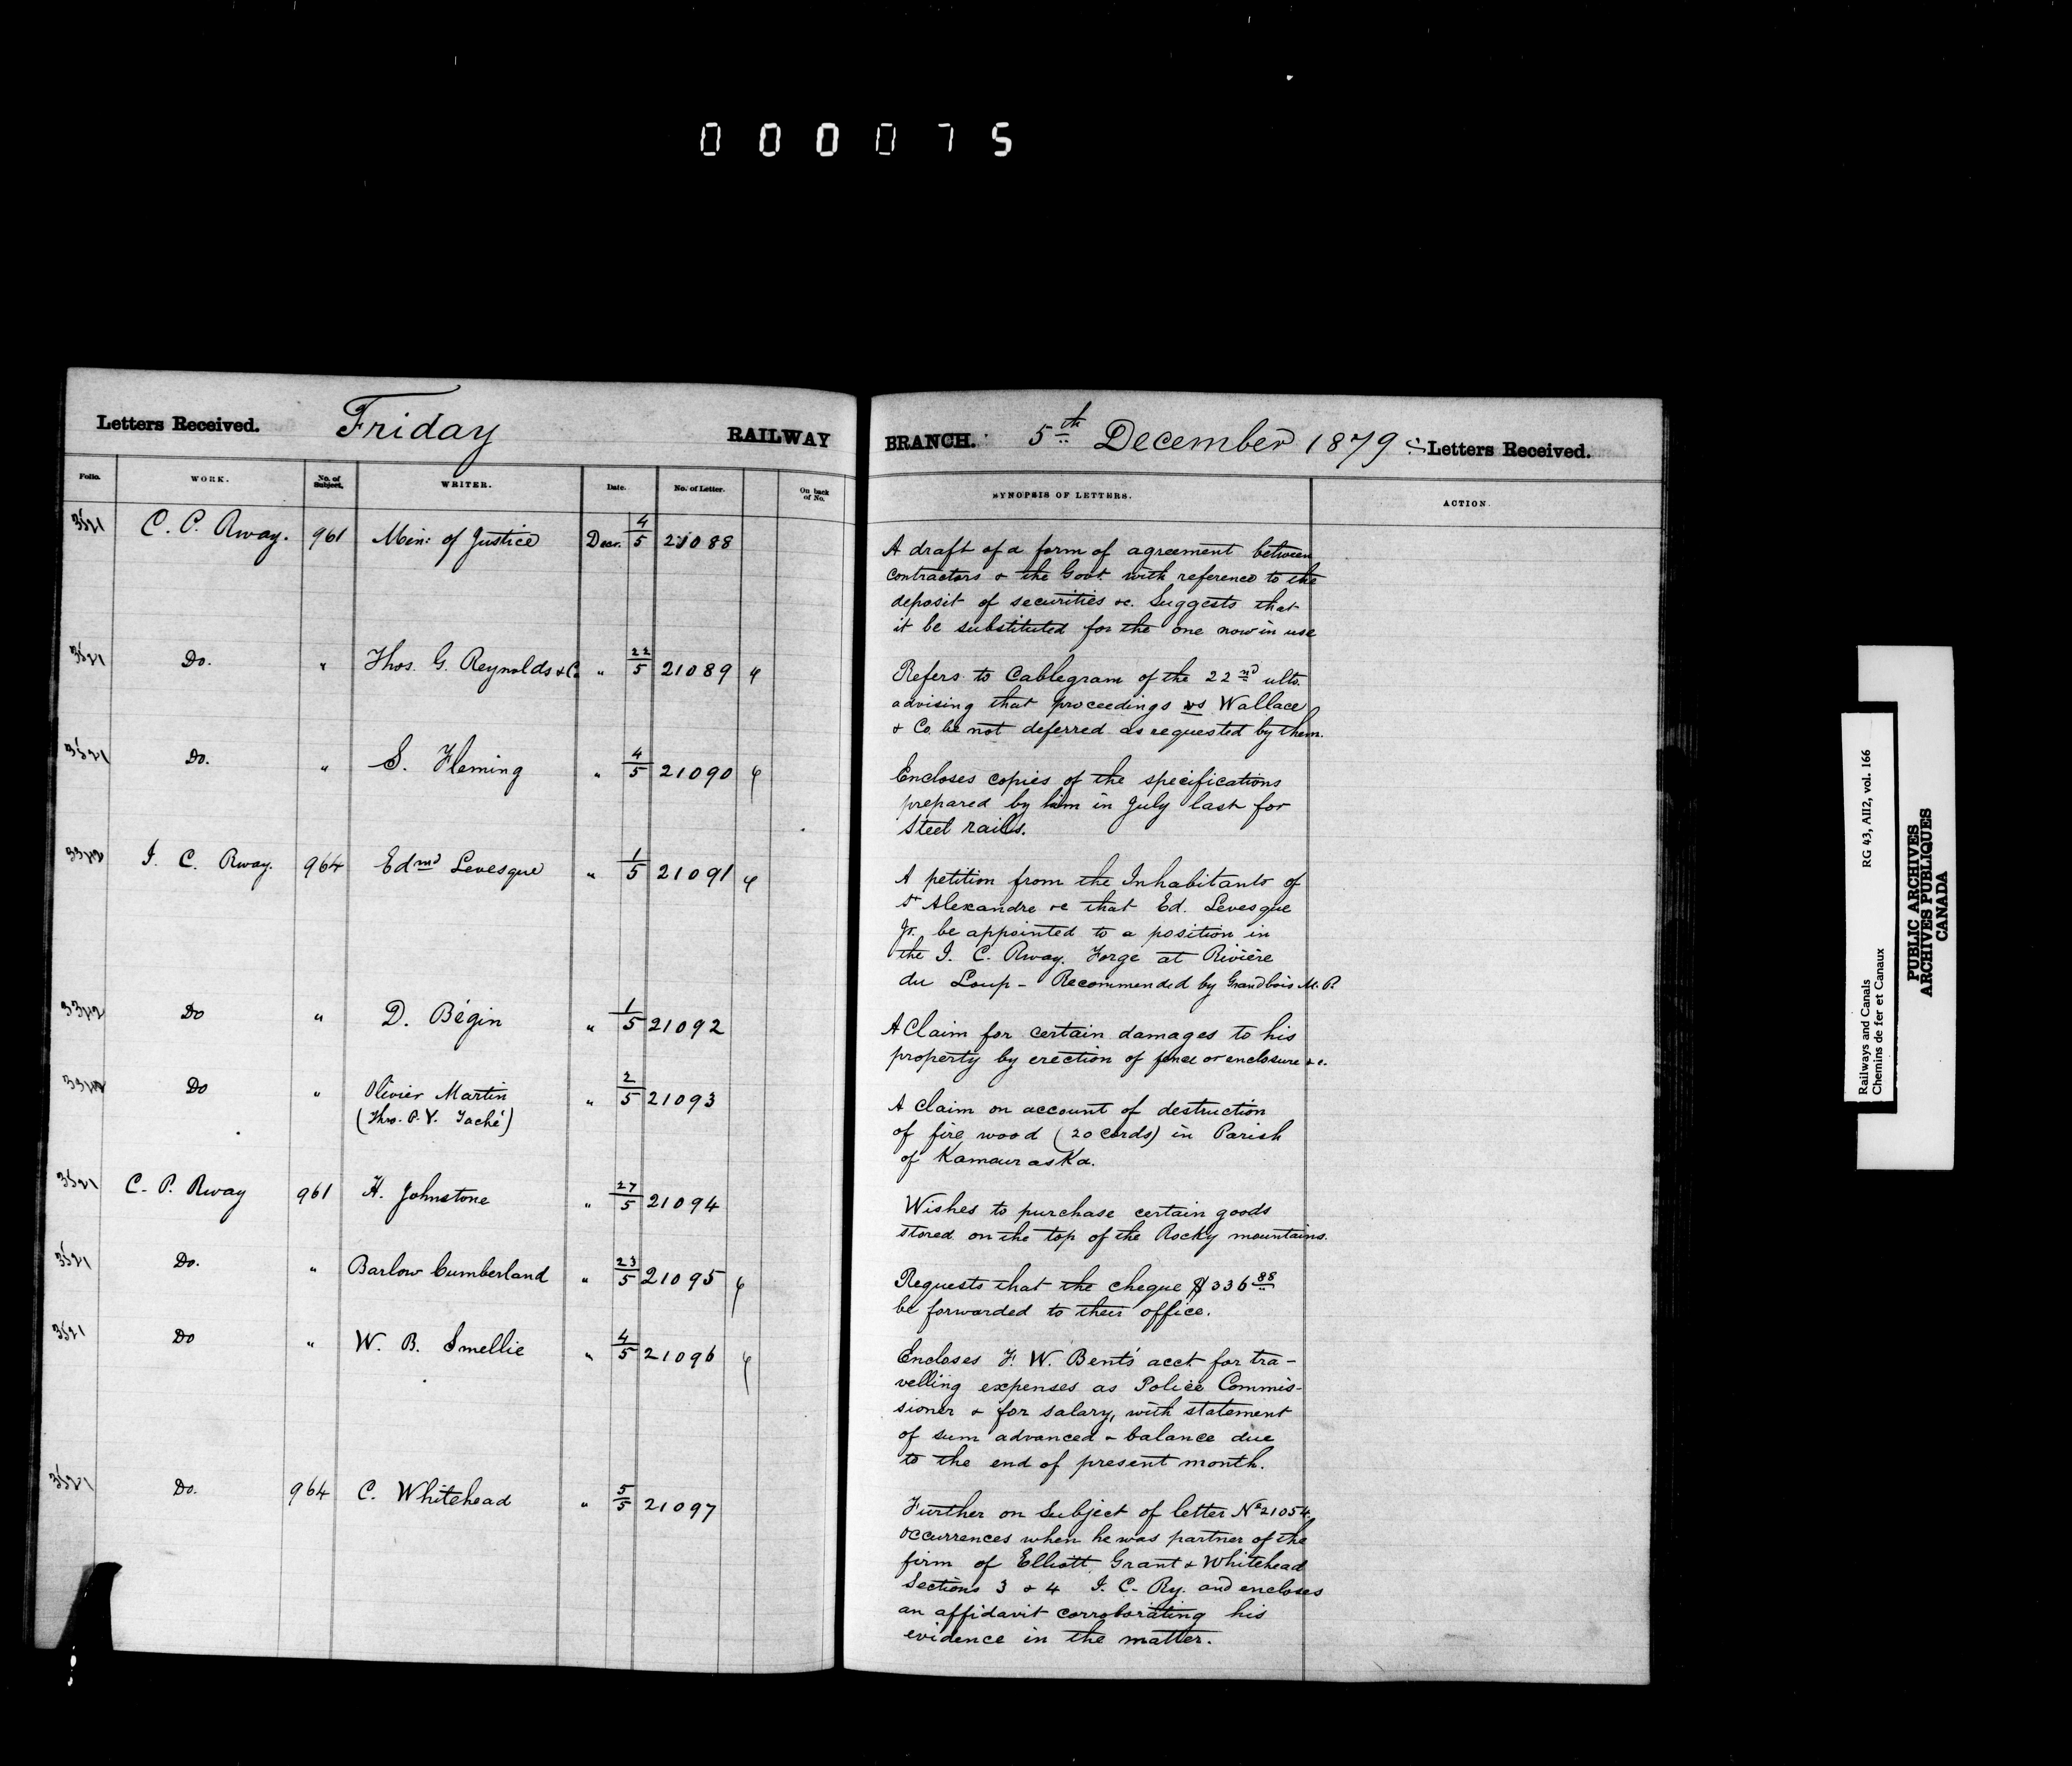 000075
Letters Received. Friday RAILWAY
BRANCH. 5th December 1879 Letters Received.
Folio. WORK. No. of Subject. WRITER. Date. No. of Letter. On back of No.
SYNOPSIS OF LETTERS. ACTION.
3521 C. P. Rway. 961 Min: of Justice Decr. 4/5 21088
A draft of a form of agreement between
contractors & the Govt. with reference to the
deposit of securities &c. Suggests that
it be substituted for the one now in use
3521 Do. " Thos. G. Reynolds & Co. " 22/5 21089
Refers to Cablegram of the 22nd ulto.
advising that proceedings vs Wallace
& Co. be not deferred as requested by them.
3521 Do. " S. Fleming " 4/5 21090
Encloses copies of the specifications
prepared by him in July last for
Steel rails.
I. C. Rway. 964 Edmd Levesque " 1/5 21091
A petition from the Inhabitants of
St Alexandre &c that Ed. Levesque
Jr. be appointed to a position in
the I. C. Rway. Forge at Rivière
du Loup - Recommended by Grandbois M.P.
Do " D. Bégin " 1/5 21092
A Claim for certain damages to his
property by erection of fence or enclosure &c.
Do " Olivier Martin " 2/5 21093
(Thro. P. V. Taché)
A claim on account of destruction
of fire wood (20 cords) in Parish
of Kamouraska.
3521 C. P. Rway 961 H. Johnstone " 27/5 21094
Wishes to purchase certain goods
stored on the top of the Rocky mountains.
3521 Do. " Barlow Cumberland " 23/5 21095
Requests that the cheque $336 88
be forwarded to their office.
3521 Do " W. B. Smellie " 4/5 21096
Encloses F. W. Bent's acct for tra-
velling expenses as Police Commis-
sioner & for salary, with statement
of sum advanced & balance due
to the end of present month.
3521 Do. 964 C. Whitehead " 5/5 21097
Further on Subject of letter No 21054,
occurrences when he was partner of the
firm of Elliott, Grant & Whitehead
Sections 3 & 4 I. C. Ry. and encloses
an affidavit corroborating his
evidence in the matter.
Railways and Canals RG 43, AII2, vol. 166
Chemins de fer et Canaux
PUBLIC ARCHIVES
ARCHIVES PUBLIQUES
CANADA